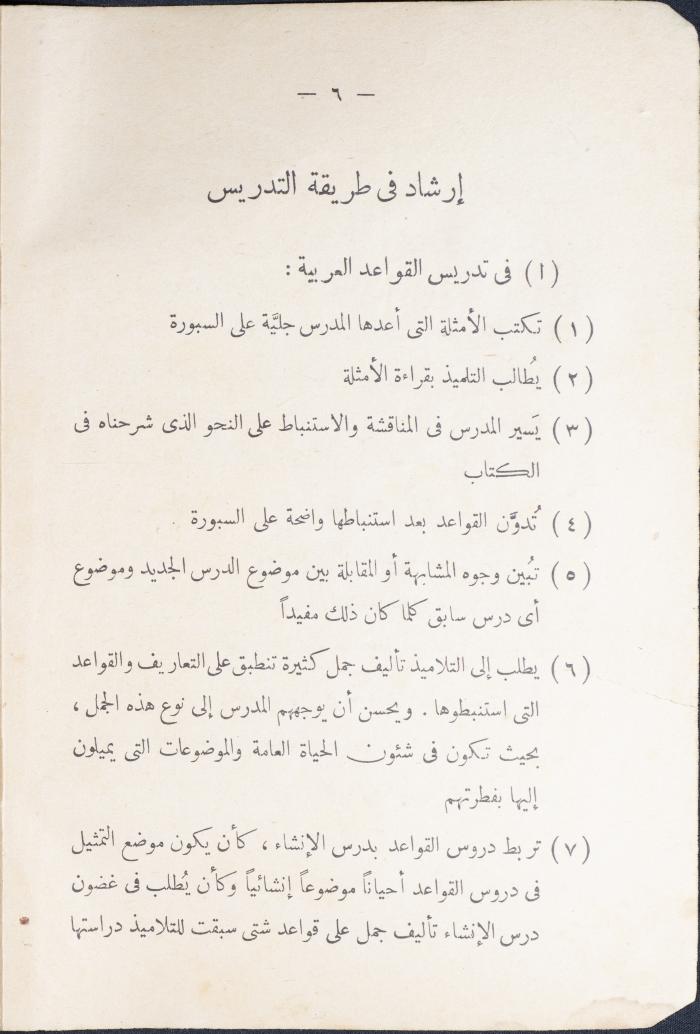 — ٦ —
إرشاد فى طريقة التدريس
(ا) فى تدريس القواعد العربية :
(١) تكتب الأمثلة التى أعدها المدرس جليَّة على السبورة
(٢) يُطالب التلميذ بقراءة الأمثلة
(٣) يَسير المدرس فى المناقشة والاستنباط على النحو الذى شرحناه فى
الكتاب
(٤) تُدوَّن القواعد بعد استنباطها واضحة على السبورة
(٥) تُبين وجوه المشابهة أو المقابلة بين موضوع الدرس الجديد وموضوع
أى درس سابق كلما كان ذلك مفيداً
(٦) يطلب إلى التلاميذ تأليف جمل كثيرة تنطبق على التعاريف والقواعد
التى استنبطوها . ويحسن أن يوجههم المدرس إلى نوع هذه الجمل ،
بحيث تكون فى شئون الحياة العامة والموضوعات التى يميلون
إليها بفطرتهم
(٧) تربط دروس القواعد بدرس الإنشاء ، كأن يكون موضع التمثيل
فى دروس القواعد أحياناً موضوعاً إنشائياً وكأن يُطلب فى غضون
درس الإنشاء تأليف جمل على قواعد شتى سبقت للتلاميذ دراستها